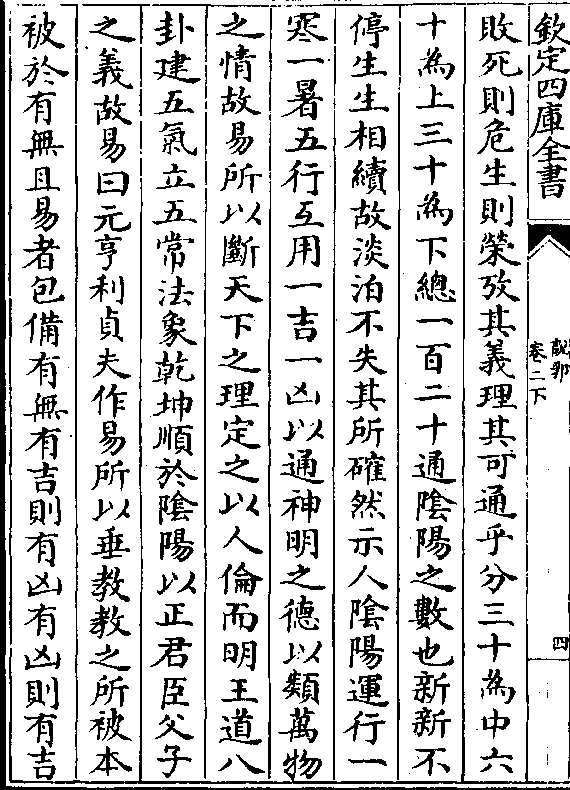 欽定四庫全書
卷二下
四
敗死則危生則榮攷其義理其可通乎分三十為中六
十為上三十為下總一百二十通陰陽之數也新新不
停生生相續故淡泊不失其所確然示人陰陽運行一
寒一暑五行互用一吉一凶以通神明之德以類萬物
之情故易所以斷天下之理定之以人倫而明王道八
卦建五氣立五常法象乾坤順於陰陽以正君臣父子
之義故易曰元亨利貞夫作易所以垂教教之所被本
被於有無且易者包備有無有吉則有凶有凶則有吉